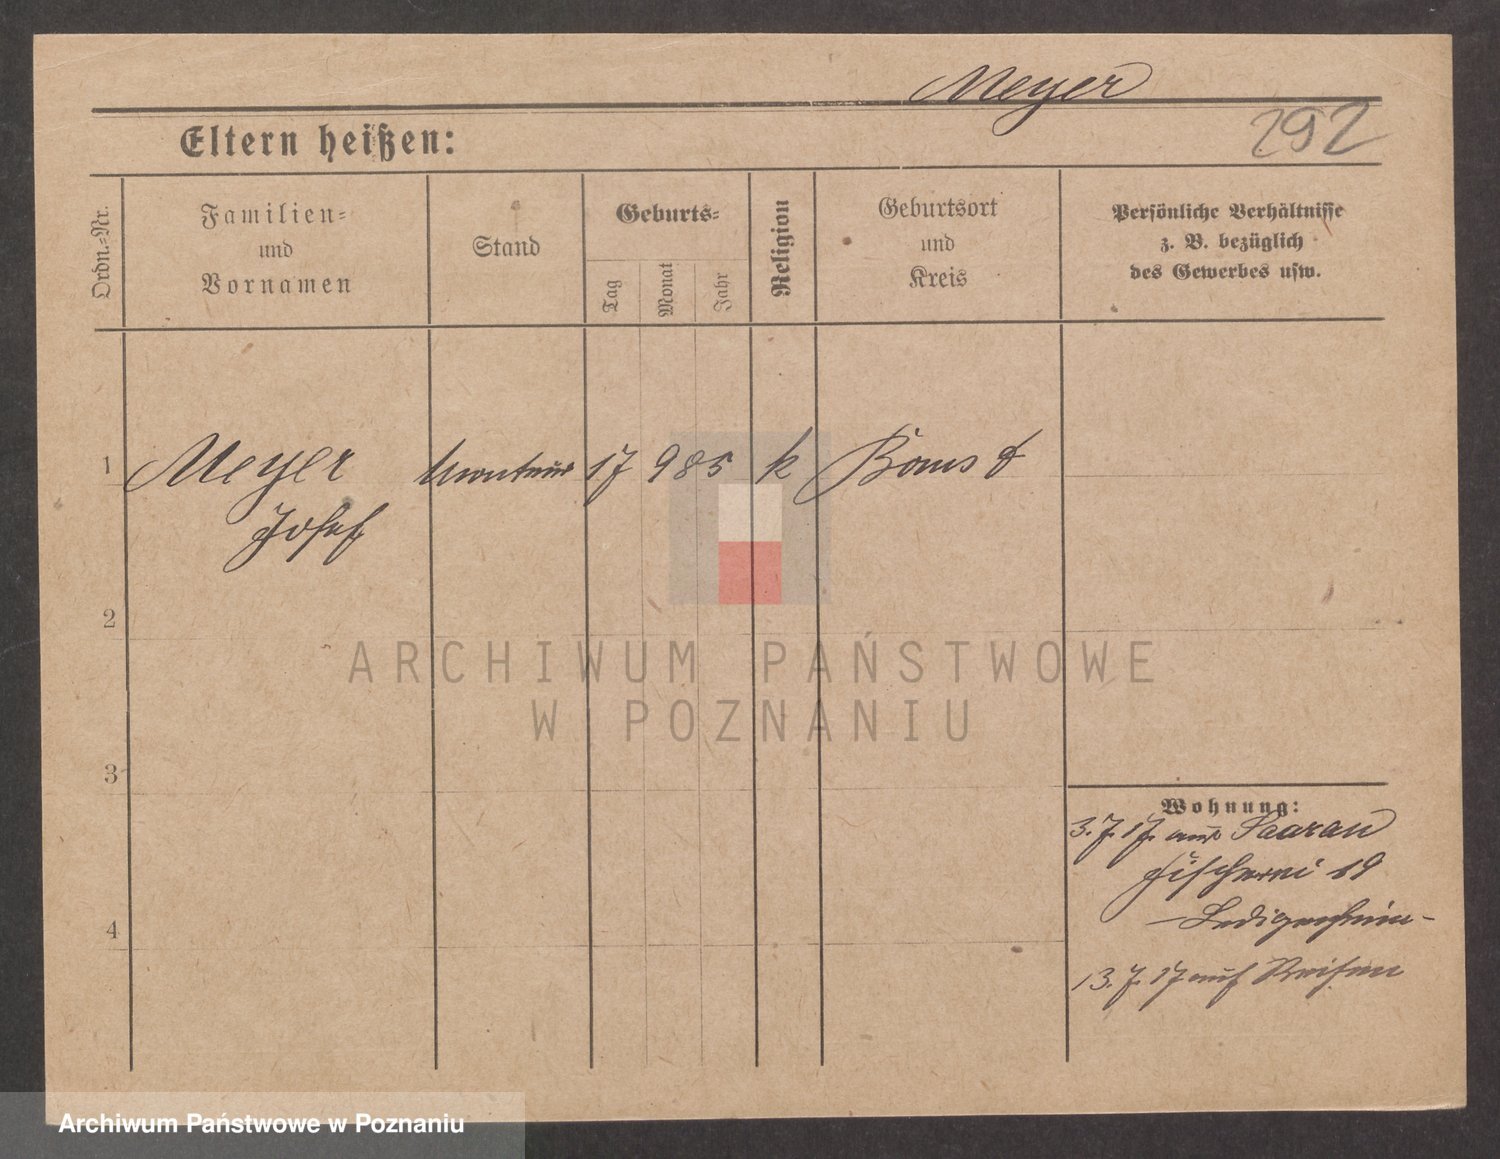 Meyer
Eltern heißen:
292
Ordn.-Nr.
Familien-
und
Vornamen
Stand
Geburts-
Tag
Monat
Jahr
Religion
Geburtsort
und
Kreis
Persönliche Verhältnisse
z. B. bezüglich
des Gewerbes usw.
1
Meyer
Josef
Monteur
17
9
85
k
Bomst
2
ARCHIWUM PAŃSTWOWE
W POZNANIU
3
Wohnung:
3.7.17. aus Saarau
Fischerei 19
- Ledigenheim -
4
13.7.17 auf Reisen
Archiwum Państwowe w Poznaniu